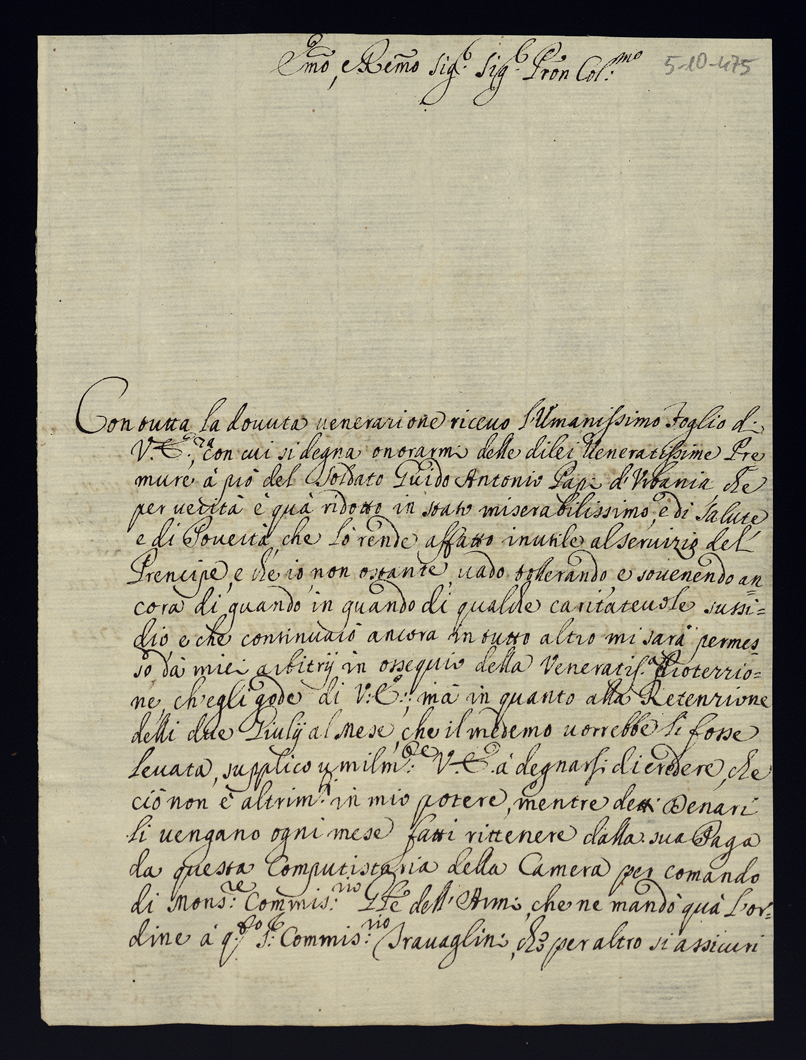 Emo, e Remo Sigr. Sigr. Pron Col:mo
5-10-475
Con tutta la dovuta venerazione ricevo l'Umanissimo Foglio di
V.E:za, con cui si degna onorarmi delle di lei Veneratissime Pre
mure à prò del Soldato Guido Antonio Papi d'Urbania, che
per verità è quà ridotto in stato miserabilissimo, e di Salute
e di Povertà, che lo rende affatto inutile al servizio del
Prencipe, e che io non ostante, vado tollerando e sovenendo an
cora di quando, in quando di qualche caritatevole sussi=
dio, e che continuarò ancora in tutto altro mi sarà permes=
so dà miei arbitrij in ossequio della Veneratis.a Protezzio=
ne, ch'egli gode di V:E:; mà in quanto alla Retenzione
delli due Giulij al Mese, che il medemo vorrebbe li fosse
levata, supplico umilm:te V.E. à degnarsi di credere, che
ciò non è altrim:ti in mio potere, mentre detti Denari
li vengano ogni mese fatti rittenere dalla sua Paga
da questa Computistaria della Camera per comando
di Mons:re Commis:rio dell'Armi, che ne mandò quà l'or=
dine à q:sto S:r Commis:rio Travaglini, che per altro si assicuri